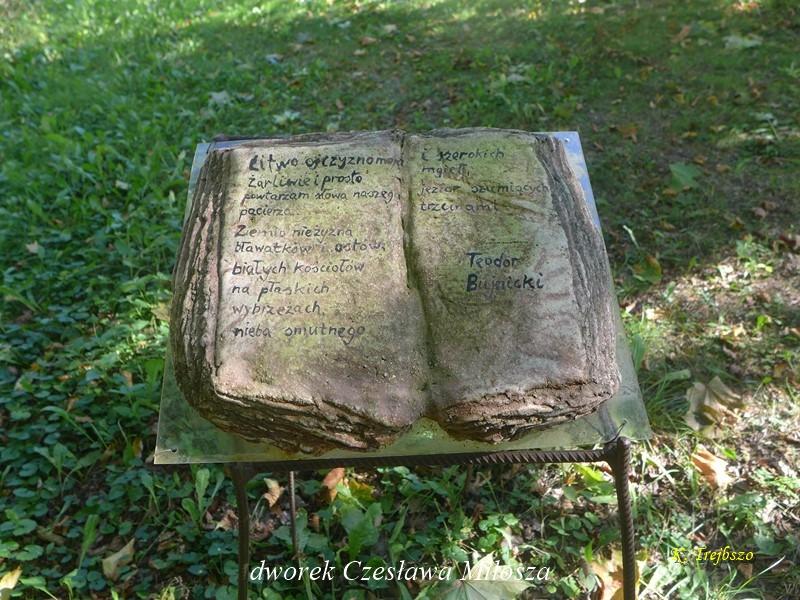 Litwo ojczyzno moja
Żarliwie i prosto
powtarzam słowa naszego
pacierza.
Ziemio nieżyzna
bławatków i ostów,
białych kościołów
na płaskich
wybrzeżach,
nieba smutnego
i szerokich
mgieł,
jezior szumiących
trzcinami
Teodor
Bujnicki
K. Trejbszo
dworek Czesława Miłosza